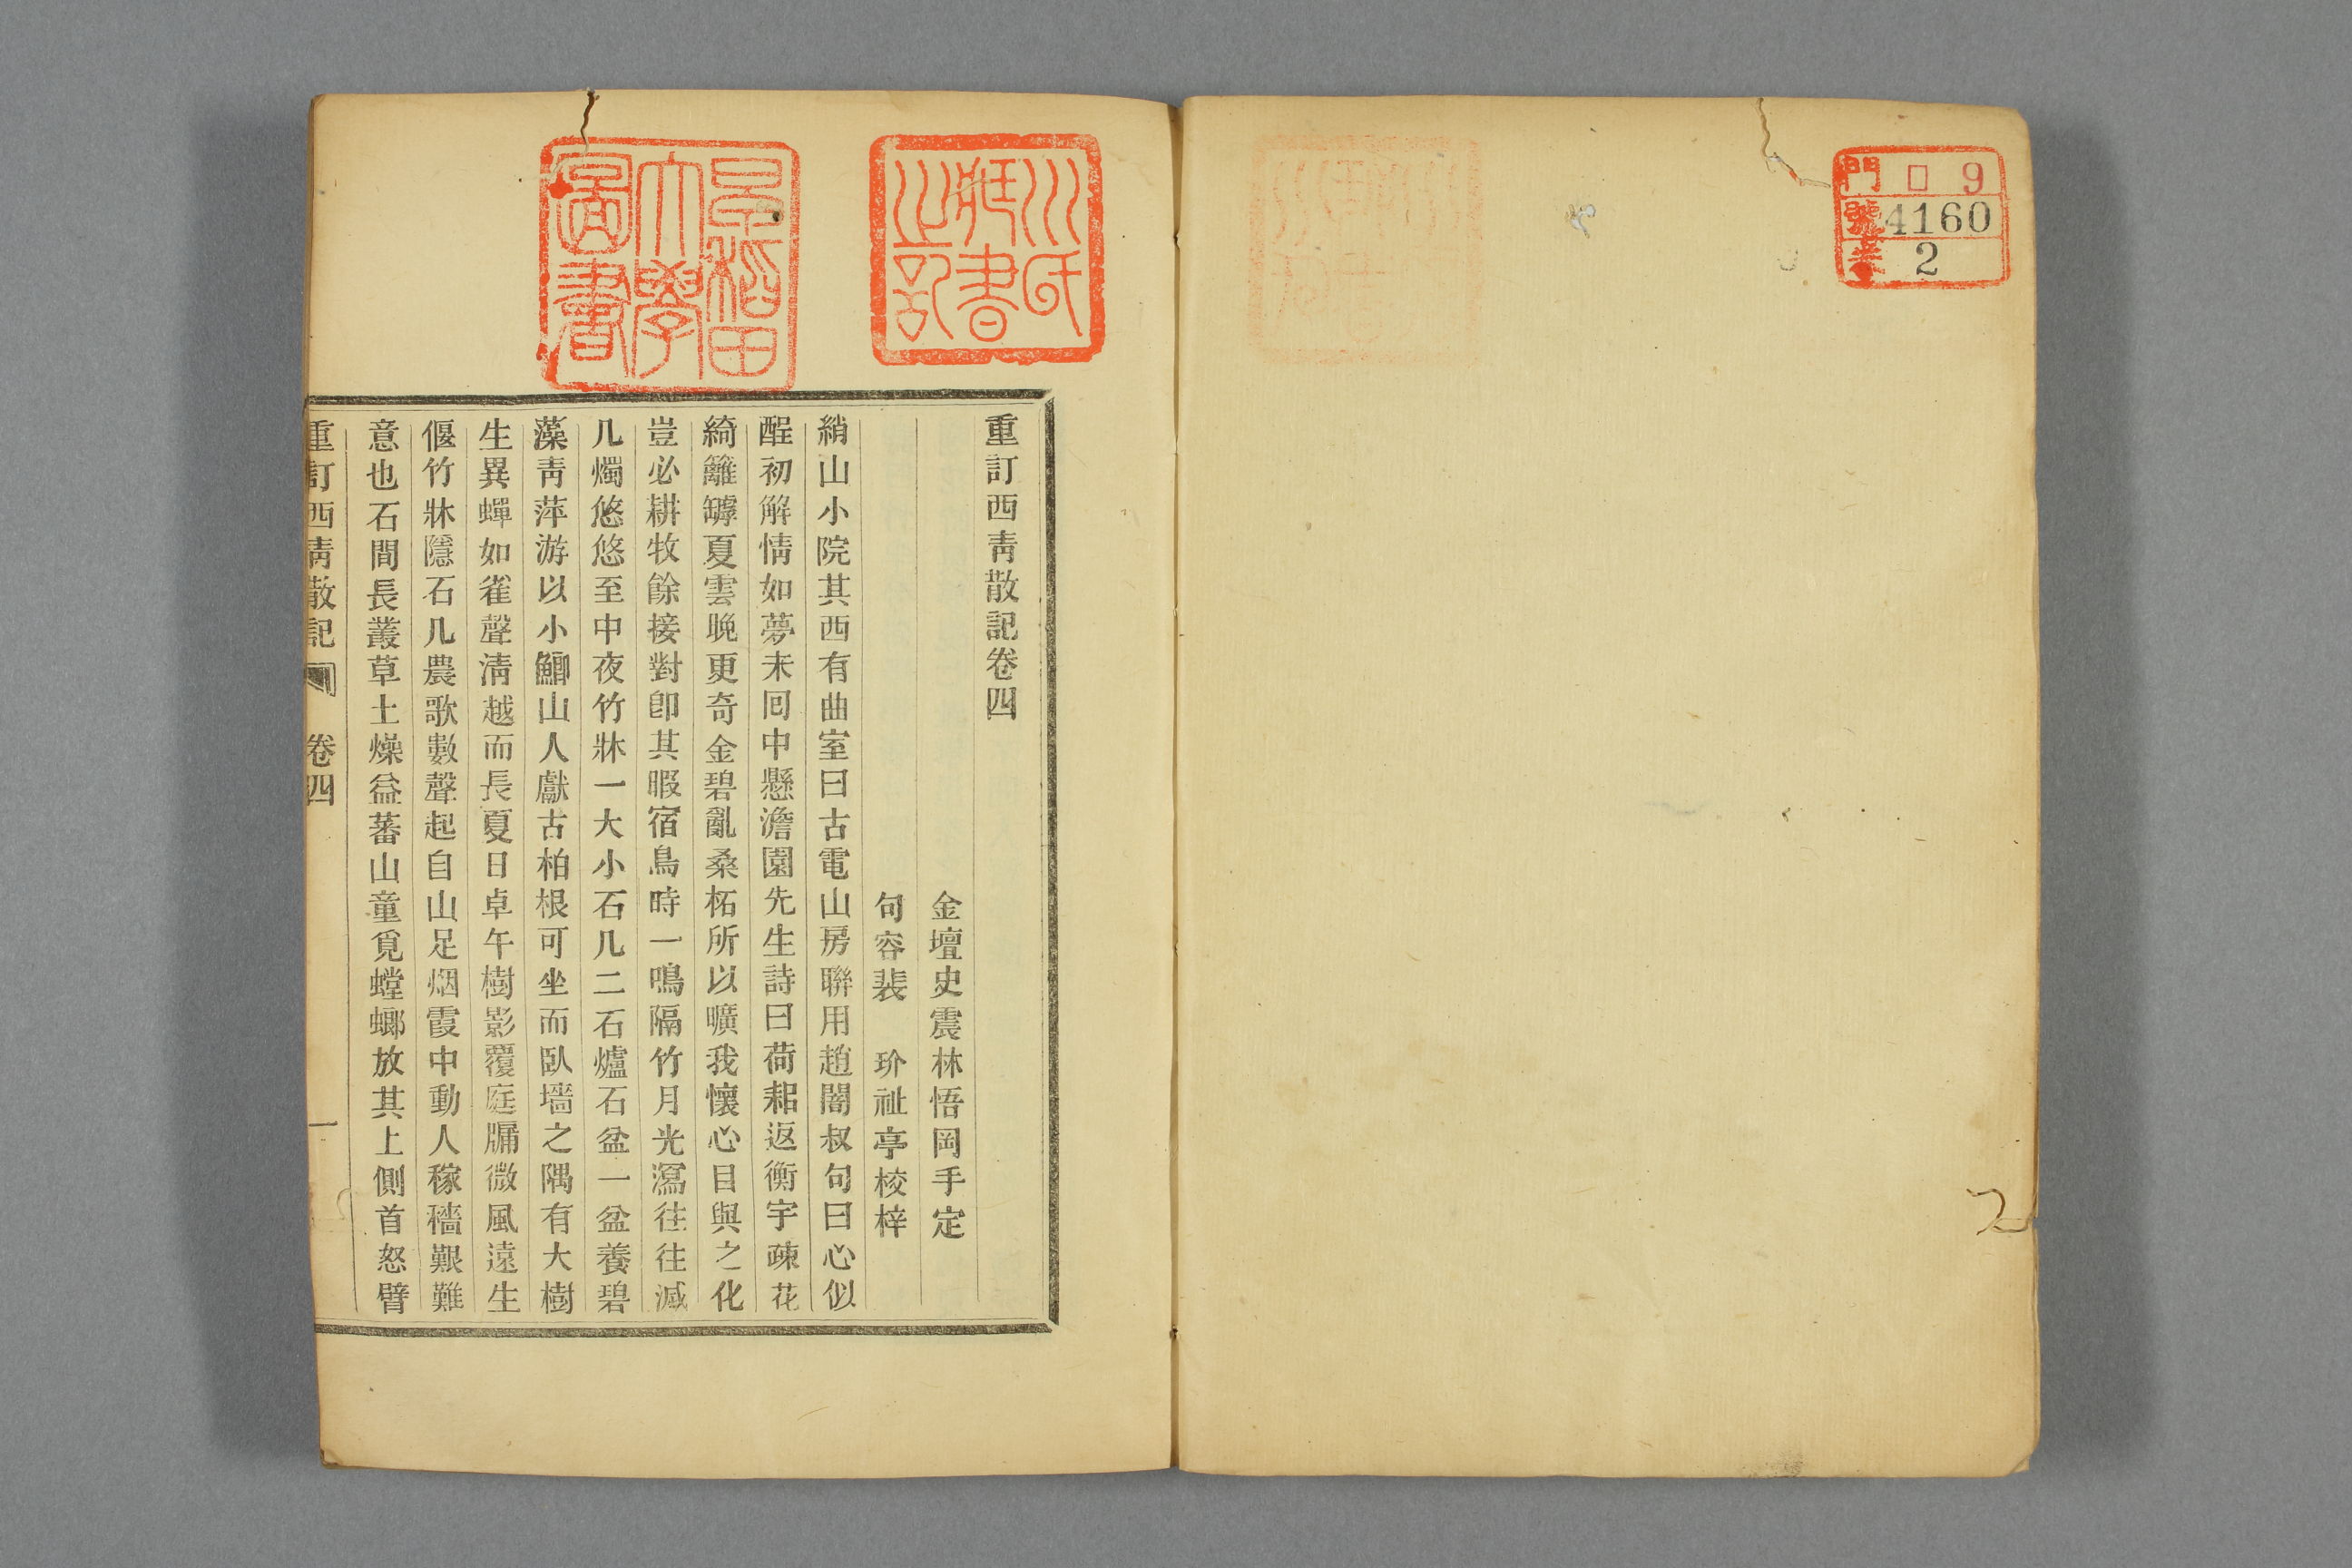 門 ロ 9
號 4160
卷 2
川氏
書
之記
早稲田
大學
圖書
重訂西青散記卷四
金壇史震林悟岡手定
句容裴 玠祉亭校梓
綃山小院其西有曲室曰古電山房聯用趙闇叔句曰心似
酲初解情如夢未回中懸澹園先生詩曰荷耜返衡宇疎花
綺籬罅夏雲晚更奇金碧亂桑柘所以曠我懷心目與之化
豈必耕牧餘接對卽其暇宿鳥時一鳴隔竹月光瀉往往滅
几燭悠悠至中夜竹牀一大小石几二石爐石盆一盆養碧
藻靑萍游以小鯽山人獻古柏根可坐而臥墻之隅有大樹
生異蟬如雀聲淸越而長夏日卓午樹影覆庭牖微風遠生
偃竹牀隱石几農歌數聲起自山足烟霞中動人稼穡艱難
意也石間長叢草土燥益蕃山童覓螳螂放其上側首怒臂
重訂西青散記 卷四 一